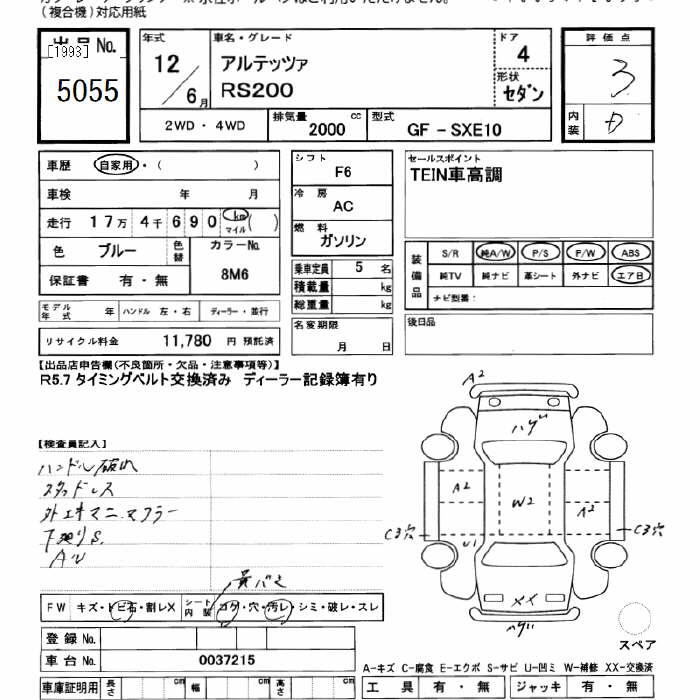 (複合機)対応用紙
出品 No.
[1993]
5055
年式
12 / 6月
車名・グレード
アルテッツァ
RS200
ドア
4
形状
セダン
2WD ・ 4WD
排気量 2000 cc
型式 GF - SXE10
評価点
3
内装
D
車歴 自家用 ・ ( )
車検 年 月
走行 17万 4千 6 9 0 km マイル ( )
色 ブルー 色替 カラーNo. 8M6
保証書 有 ・ 無
シフト F6
冷房 AC
燃料 ガソリン
乗車定員 5 名
積載量 kg
総重量 kg
名変期限
月 日
モデル年式 年 ハンドル 左・右 ディーラー・並行
リサイクル料金 11,780 円 預託済
セールスポイント
TEIN車高調
装備品
S/R 純A/W P/S P/W ABS
純TV 純ナビ 革シート 外ナビ エアB
ナビ型番:
後日品
【出品店申告欄(不良箇所・欠品・注意事項等)】
R5.7 タイミングベルト交換済み ディーラー記録簿有り
【検査員記入】
ハンドル破れ
スタッドレス
外エキマニ.マフラー
下廻りS.
A2
ハゲ
A2
W2
A2
C3穴
C3穴
U1
XX
ハゲ
FW キズ・トビ石・割レX シート内装 コゲ・穴・汚レ・シミ・破レ・スレ
登録 No.
車台 No. 0037215
スペア
A-キズ C-腐食 E-エクボ S-サビ U-凹ミ W-補修 XX-交換済
車庫証明用 長さ cm 幅 cm 高さ cm
工具 有 ・ 無 ジャッキ 有 ・ 無